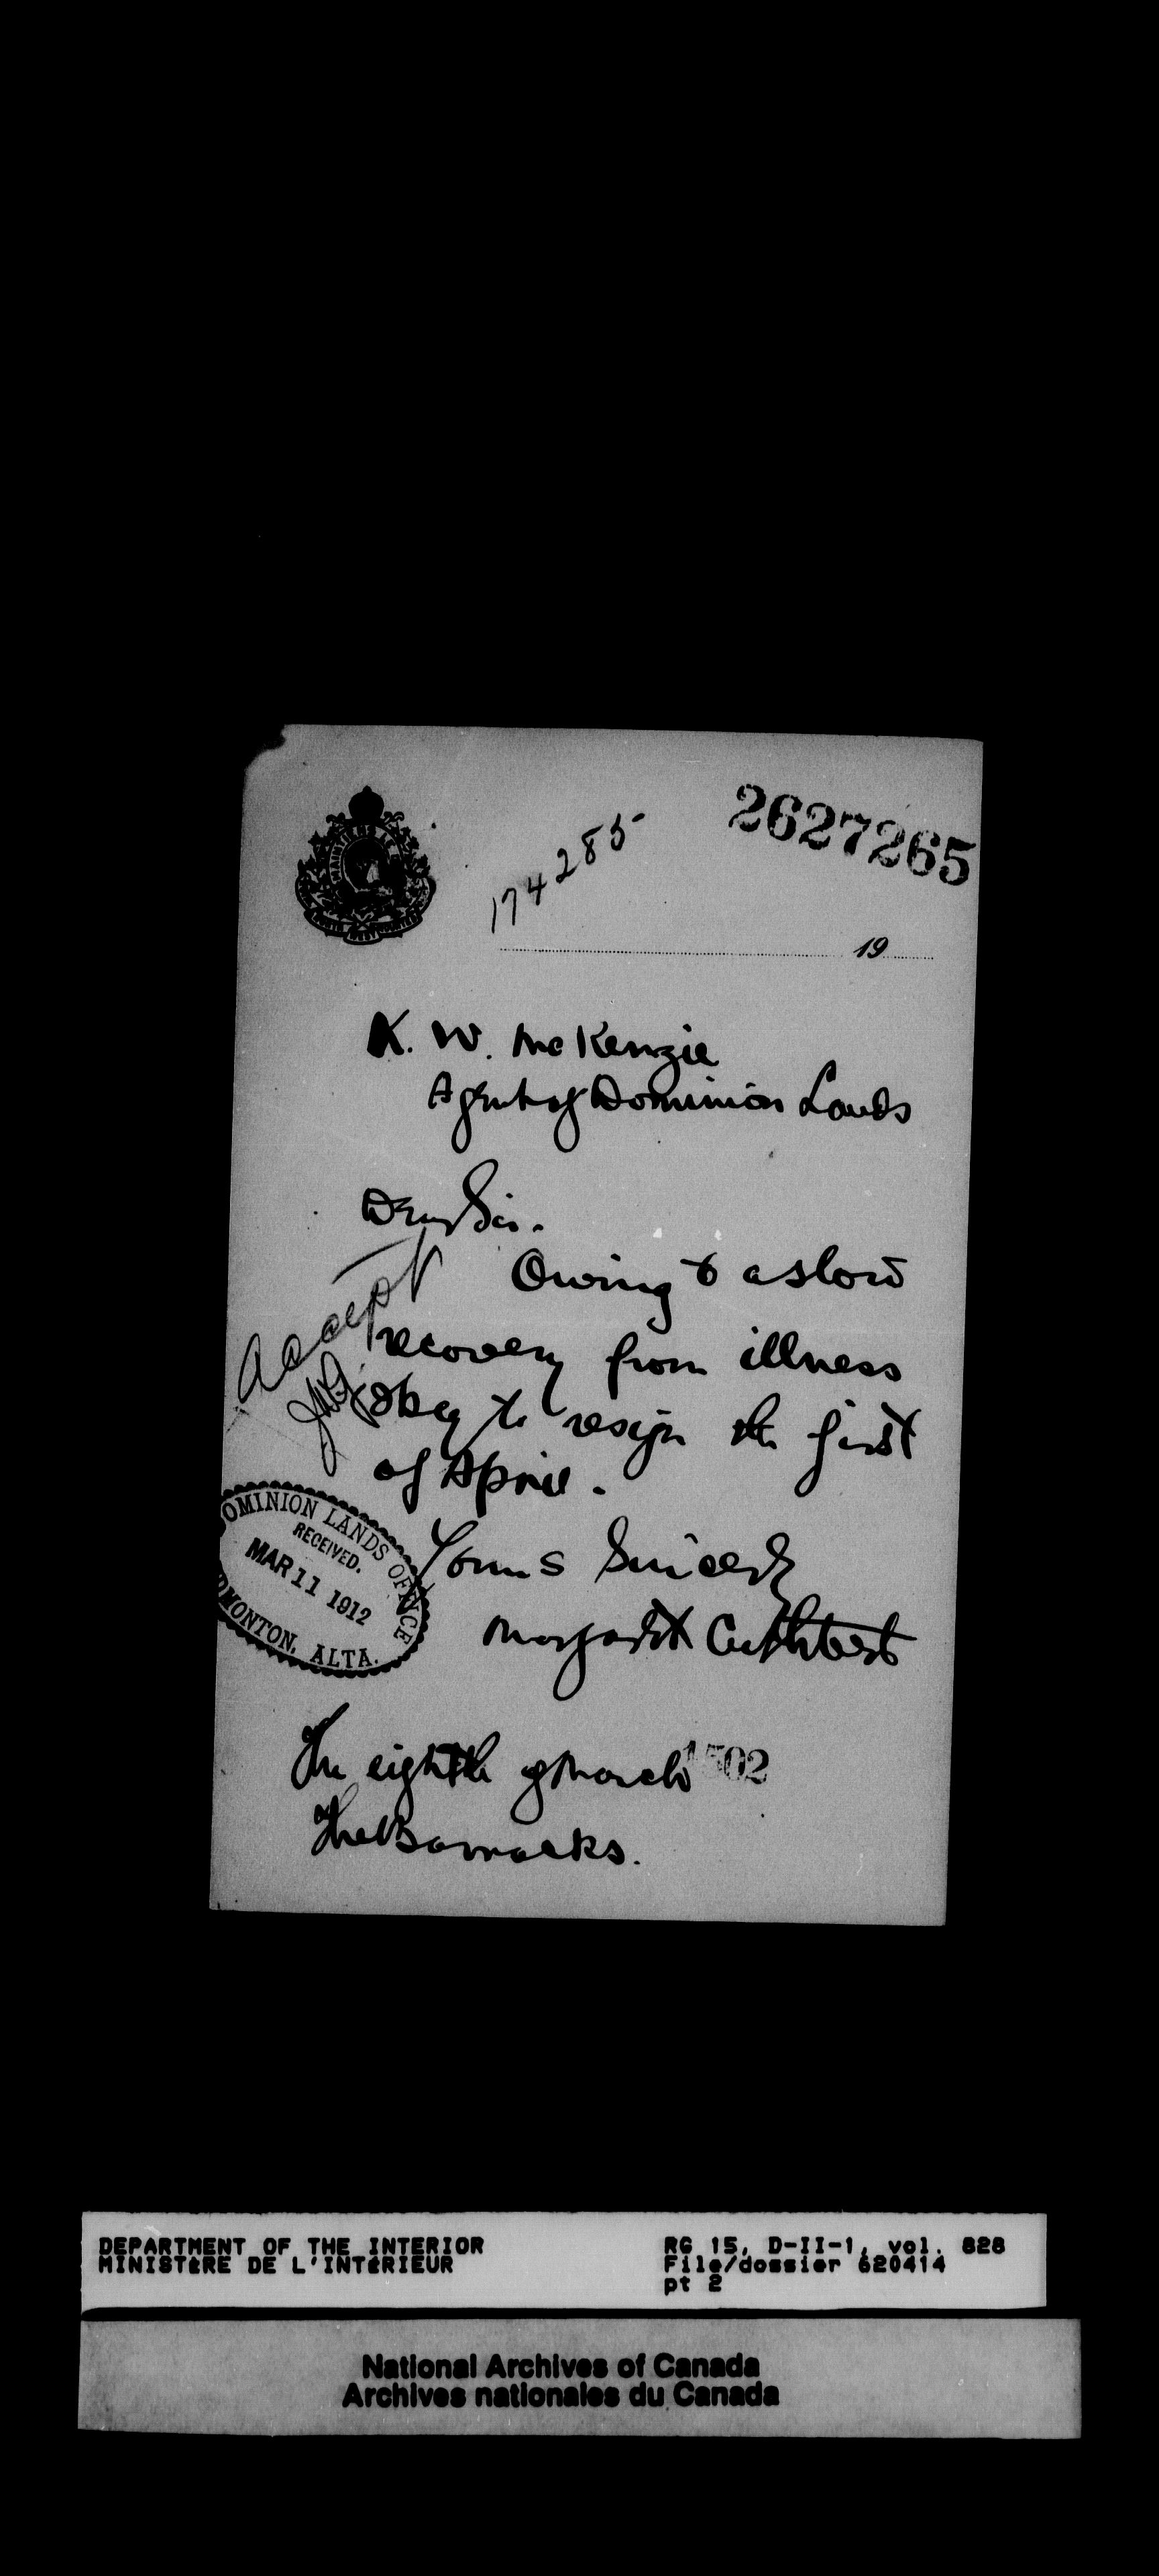 2627265
174285
MAINTIENS LE
NORTH WEST MOUNTED
19
K. W. McKenzie
Agent of Dominion Lands
Dear Sir.
Owing to a slow
recovery from illness
I beg to resign the first
of April.
Yours Sincerely
Margaret Cuthbert
Accept
DOMINION LANDS OFFICE
RECEIVED.
MAR 11 1912
EDMONTON, ALTA.
The eighth of March
1502
The Barracks.
DEPARTMENT OF THE INTERIOR
MINISTÈRE DE L'INTÉRIEUR
RG 15, D-II-1, vol. 828
File/dossier 620414
pt 2
National Archives of Canada
Archives nationales du Canada